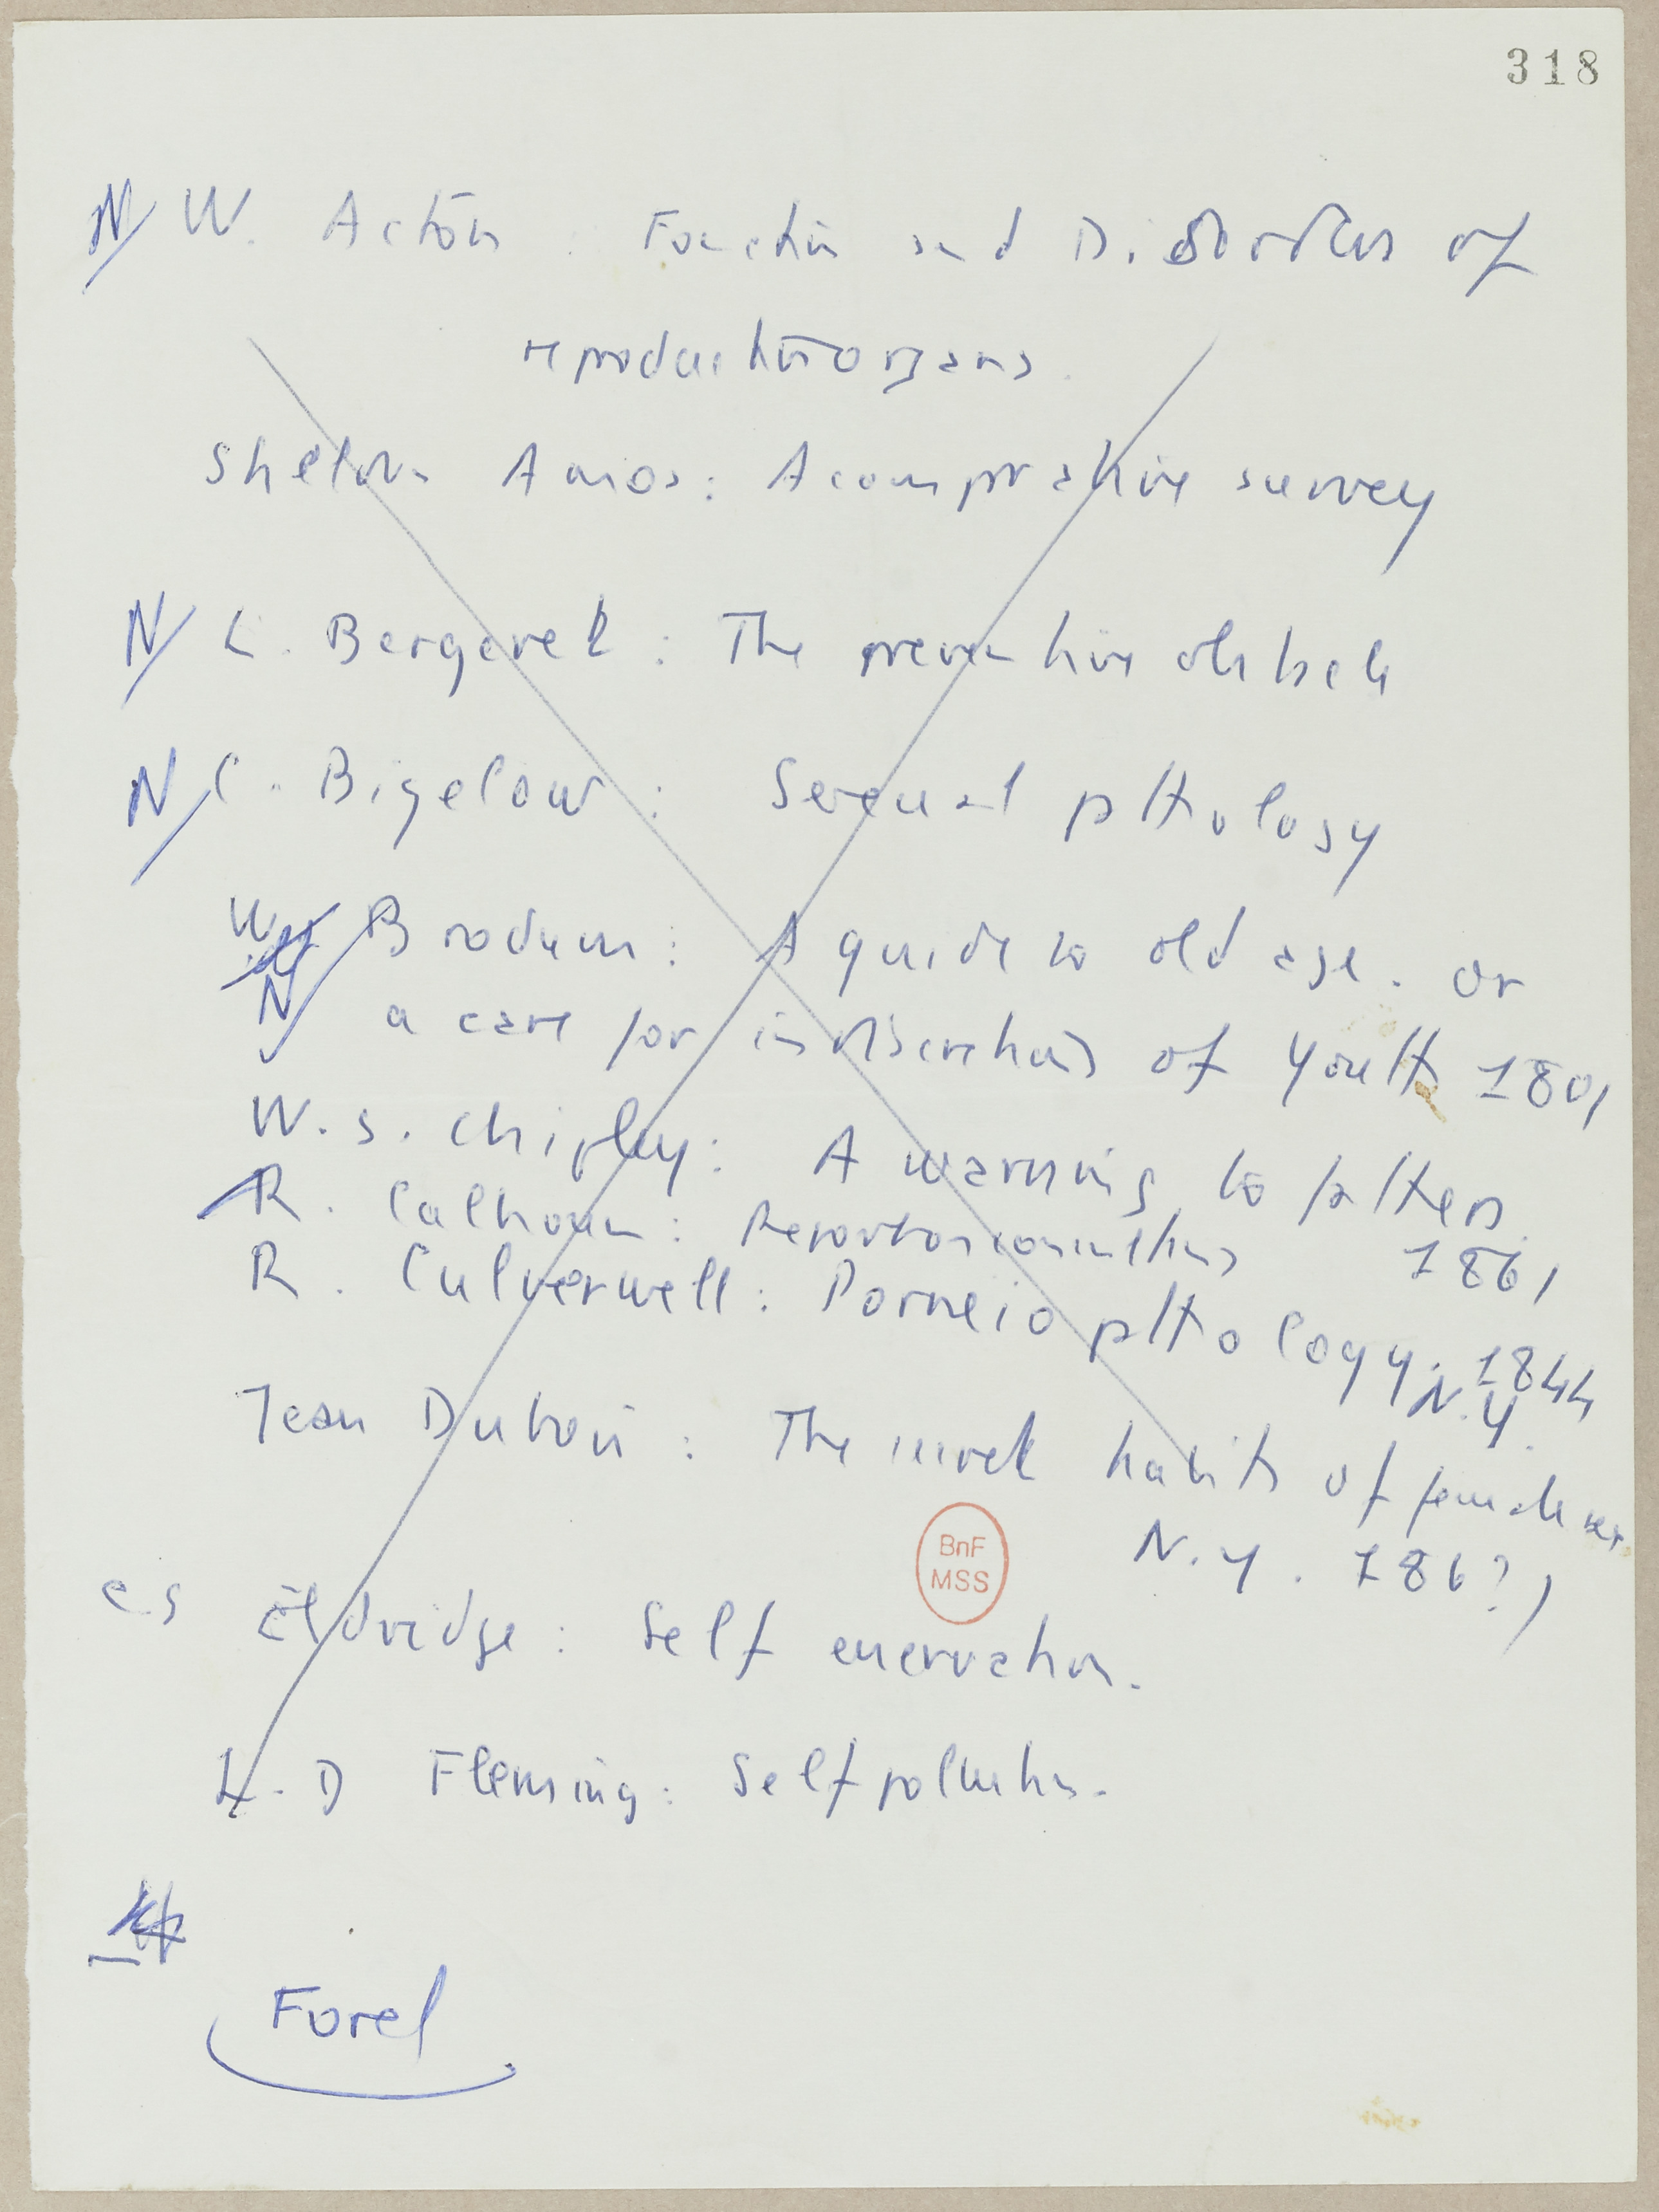 318
N/ W. Acton. Function and Disorders of
reproduction organs.
Sheldon Amos: A comprative survey
N/ L. Bergeret: The preventive obstacle
N/ C. Bigelow: Sexual pathology
W Brodum: A guide to old age. or
N/ a care for indiscretions of youth 1801
W. S. Chipley: A warning to fathers
1861
R. Calhoun: Report on consulting
R. Culverwell: Porneiopathology. 1844
N.Y.
Jean Dubois: The secret habits of female sex
N.Y. 186?)
es Eldridge: Self enervation.
L. D Fleming: Self pollution.
Forel
BnF
MSS